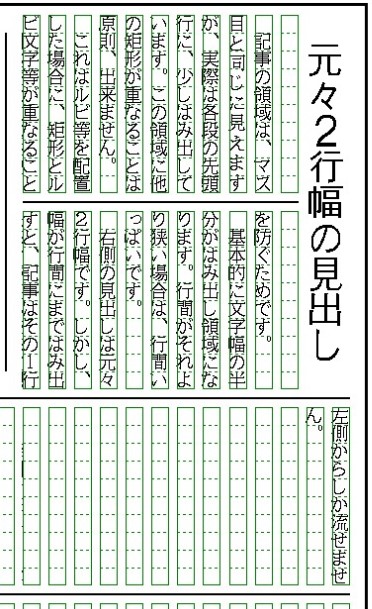 元々2行幅の見出し
記事の領域は、マス
目と同じに見えます
が、実際は各段の先頭
行に、少しはみ出して
います。この領域に他
の矩形が重なることは
原則、出来ません。
これはルビ等を配置
した場合に、矩形とル
ビ文字等が重なること
を防ぐためです。
基本的に文字幅の半
分がはみ出し領域にな
ります。行間がそれよ
り狭い場合は、行間い
っぱいです。
右側の見出しは元々
2行幅です。しかし、
幅が行間にまではみ出
すと、記事はその1行
左側からしか流せませ
ん。